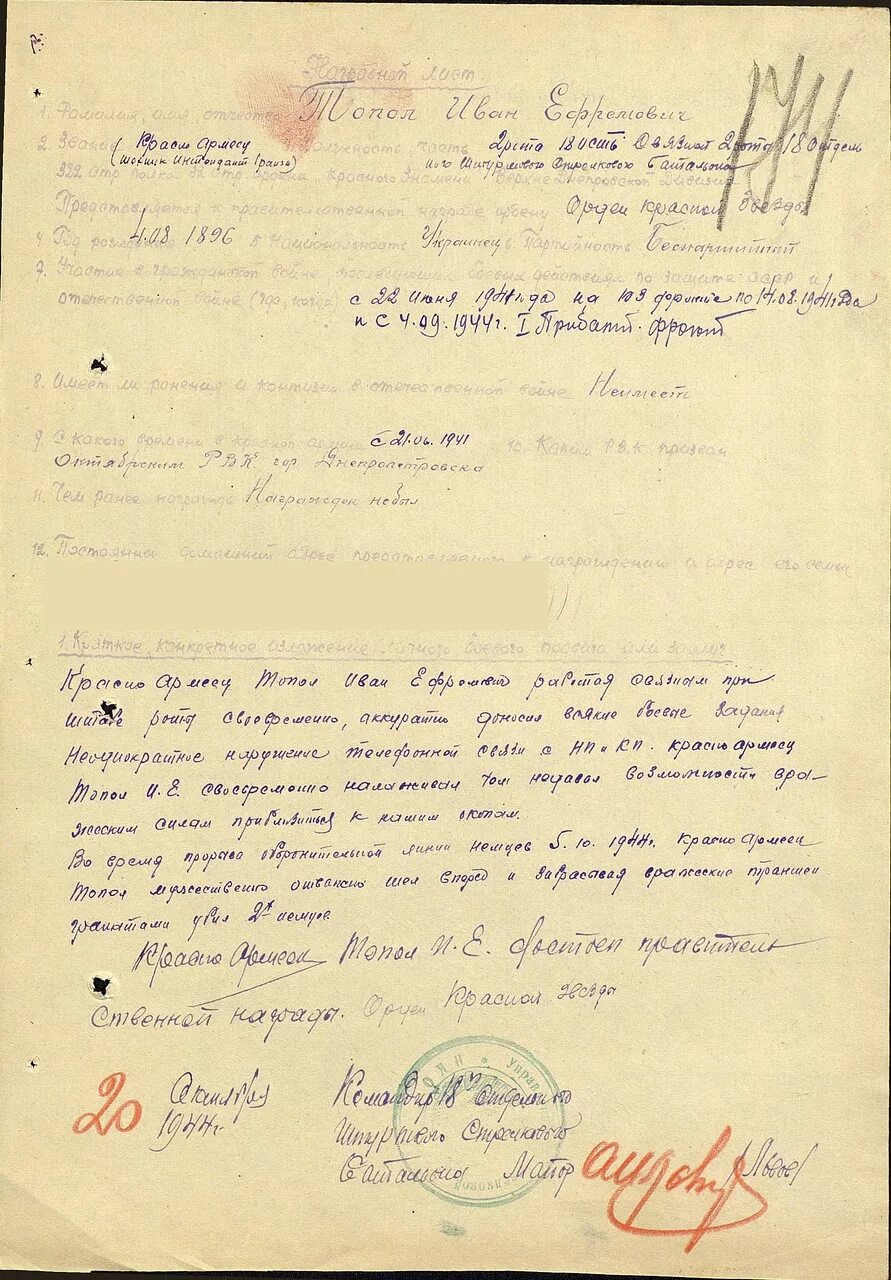 Наградной лист.
1. Фамилия, имя, отчество Топол Иван Ефремович
2. Звание Красно Армеец должность, часть 2 рота 18 Связной 2 роты 18 отдель
(Техник Интендант I ранга) ного Штурмового Стрелкового Батальона
322 Стр. полка 32 Стр. ордена Красного Знамени Верхне Днепровской Дивизии
Представляется к правительственной награде ордену Орден Красной Звезды
4. Год рождения 4.08 1896 5. Национальность Украинец 6. Партийность Беспартийный
7. Участие в гражданской войне, последующих боевых действиях по защите СССР и
отечественной войне (где, когда) с 22 Июня 1941 года на Юз фронте по 14.08.1941 года
и С 4.09.1944г. I Прибалт. фронт
8. Имеет ли ранения и контузии в отечественной войне Неимеет
9. С какого времени в красной армии с 21.06.1941 10. Каким Р.В.К призван
Октябрским Р.В.К. гор. Днепропетровска
11. Чем ранее награжден Награжден небыл
12. Постоянный домашний адрес представляемого к награждению и адрес его семьи
1. Краткое, конкретное изложение личного боевого подвига или заслуг
Красно Армеец Топол Иван Ефремович работая связным при
штабе роты своевременно, аккуратно доносил всякие боевые задания
Неоднократное нарушение телефонной связи с НП и КП. Красно армеец
Топол И.Е. своевременно налаживал чем недавал возможности вра-
жеским силам приблизиться к нашим окопам.
Во время прорыва оборонительной линии немцев 5.10.1944г. Красно Армеец
Топол мужественно отважно шел вперед и забрасывая вражеские траншеи
гранатами убил 2х немцев.
Красно Армеец Топол И.Е. достоен правитель
ственной награды. Орден Красной звезды
20 Октября
1944г.
Командир 18 Отдельного
Штурмового Стрелкового
Батальона Майор